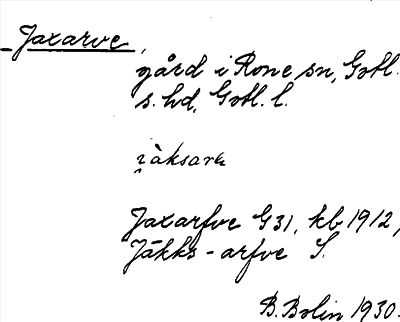 Jaxarve,
gård i Rone sn, Gotl.
s. hd, Gotl. l.
i̯àksarvɛ
Jaxarfve G31, kb 1912,
Jákks-arfve S.
B. Bolin 1930.